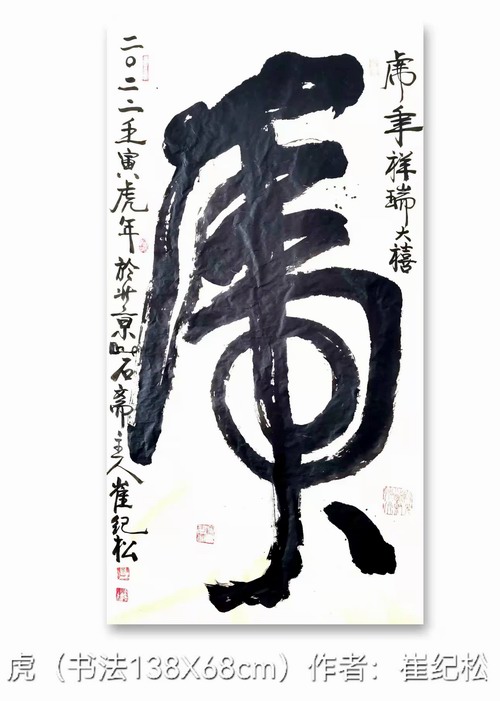 虎年祥瑞大禧
虎
二〇二二壬寅虎年於北京山石斋主人崔纪松
虎（书法138X68cm）作者：崔纪松